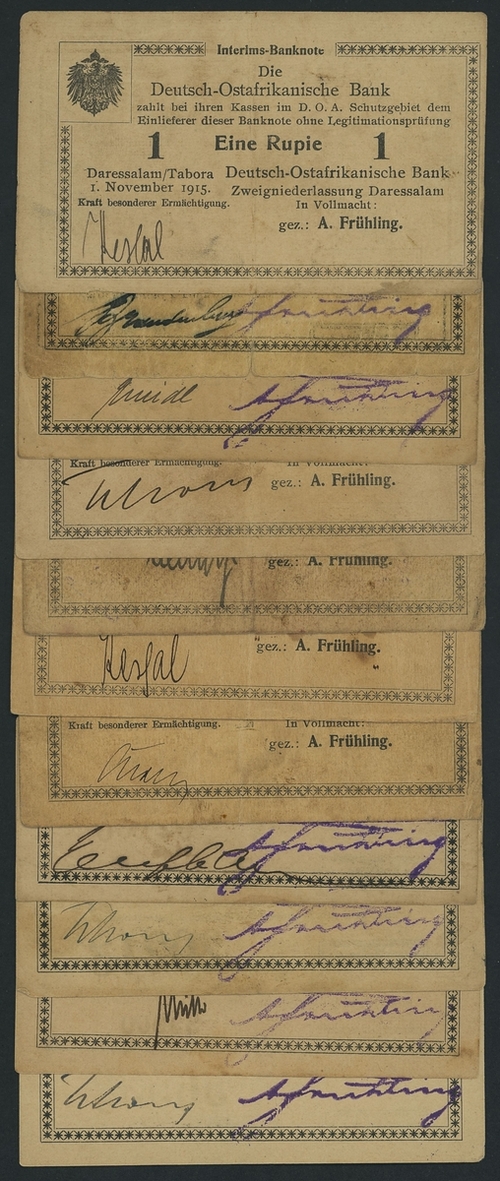 Interims-Banknote
Die
Deutsch-Ostafrikanische Bank
zahlt bei ihren Kassen im D. O. A. Schutzgebiet dem
Einlieferer dieser Banknote ohne Legitimationsprüfung
1 Eine Rupie 1
Daressalam/Tabora Deutsch-Ostafrikanische Bank
1. November 1915. Zweigniederlassung Daressalam
Kraft besonderer Ermächtigung. In Vollmacht:
gez.: A. Frühling.
A Frühling
A Frühling
Kraft besonderer Ermächtigung. In Vollmacht:
gez.: A. Frühling.
gez.: A. Frühling.
gez.: A. Frühling.
Kraft besonderer Ermächtigung. In Vollmacht:
gez.: A. Frühling.
A Frühling
A Frühling
A Frühling
A Frühling